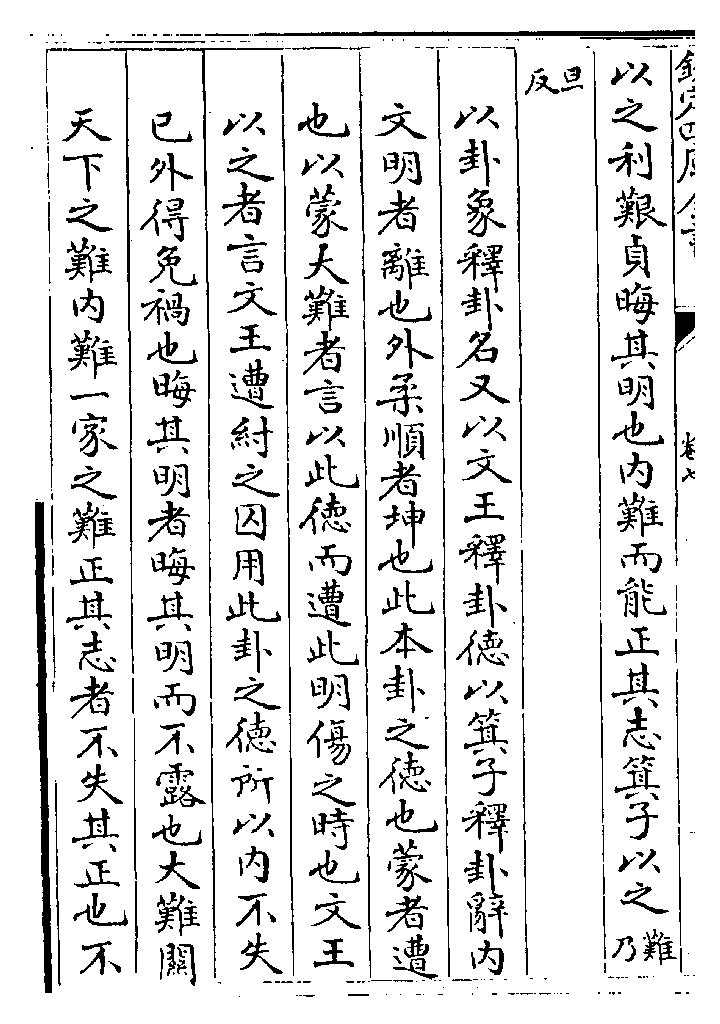 欽定四庫全書
卷七
以之利艱貞晦其明也内難而能正其志箕子以之難乃
旦反
以卦象釋卦名又以文王釋卦德以箕子釋卦辭内
文明者離也外柔順者坤也此本卦之德也蒙者遭
也以蒙大難者言以此德而遭此明傷之時也文王
以之者言文王遭紂之囚用此卦之德所以内不失
已外得免禍也晦其明者晦其明而不露也大難關
天下之難内難一家之難正其志者不失其正也不